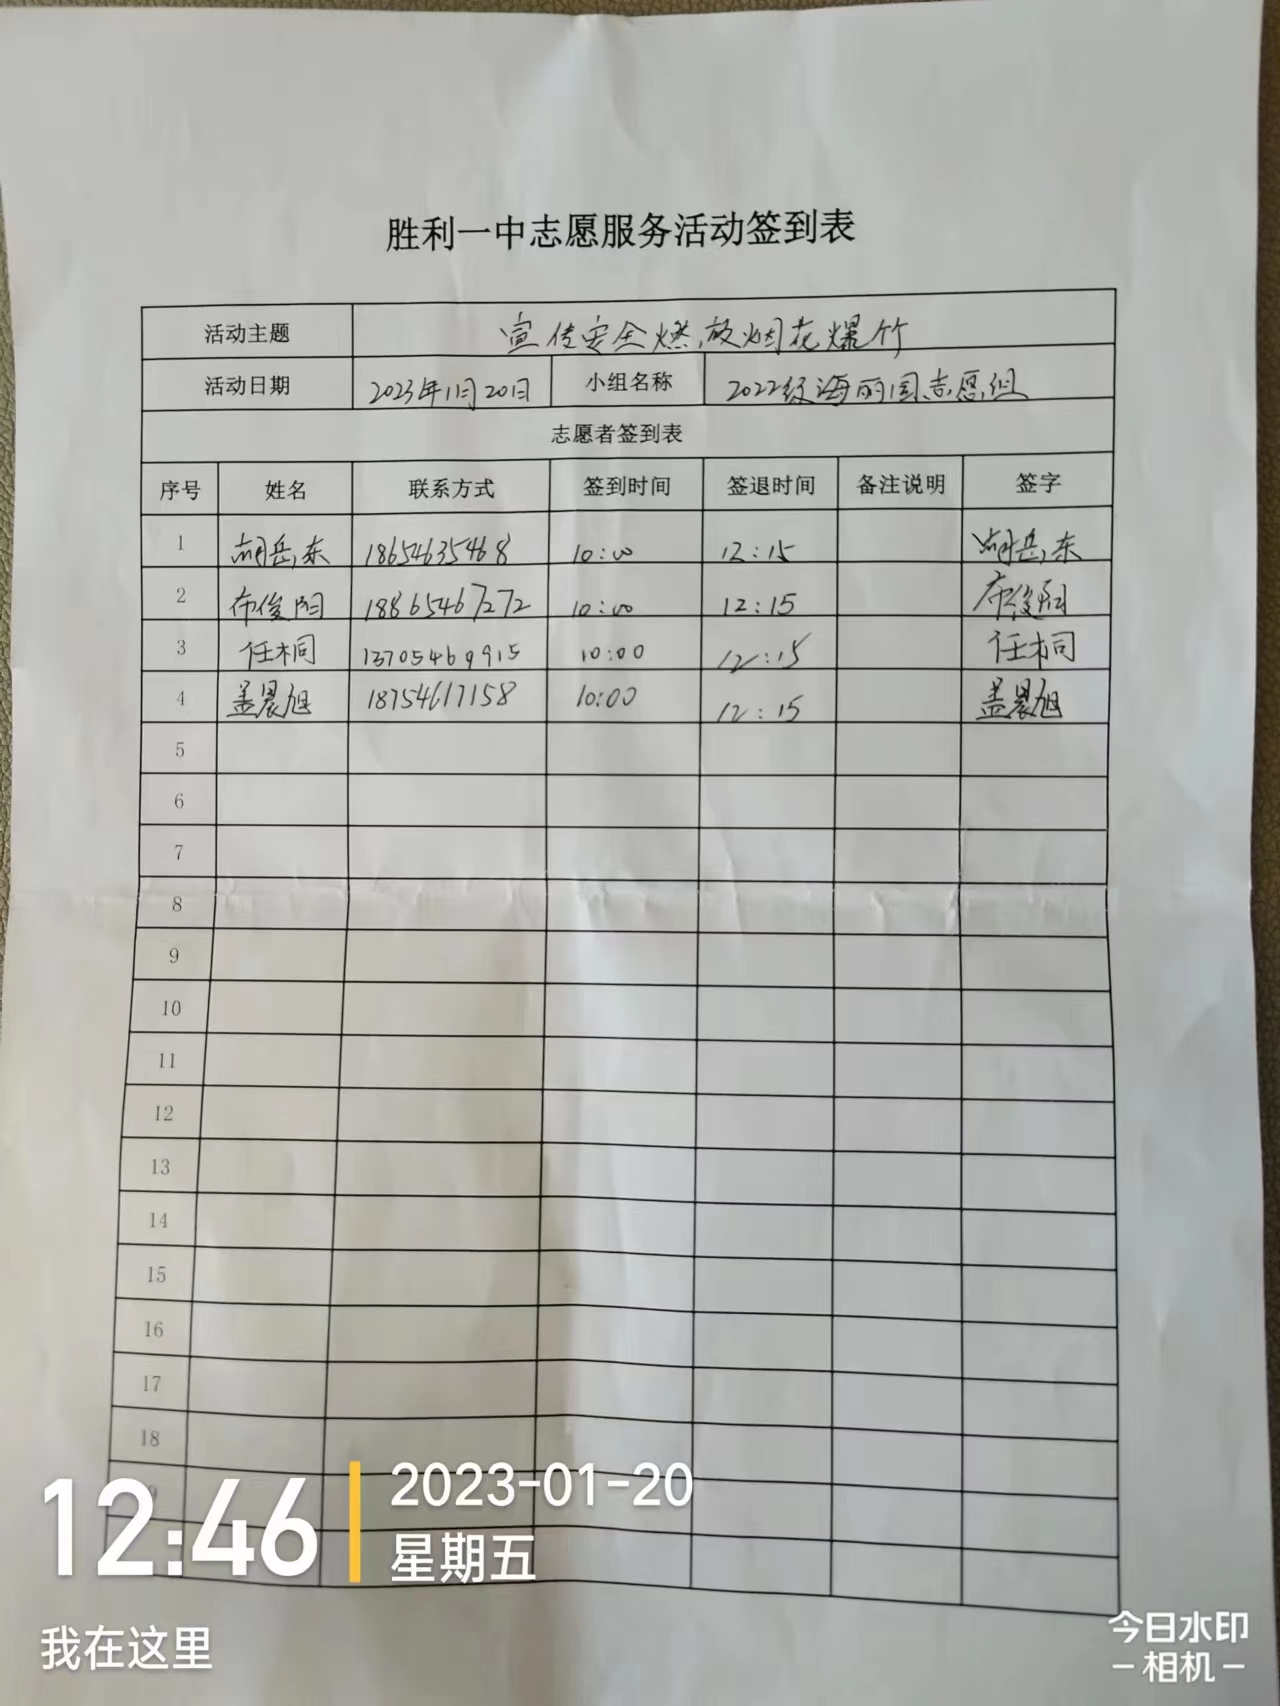 胜利一中志愿服务活动签到表
活动主题 宣传安全燃放烟花爆竹
活动日期 2023年1月20日 小组名称 2022级海丽园志愿组
志愿者签到表
序号 姓名 联系方式 签到时间 签退时间 备注说明 签字
1 胡岳东 18654635468 10:00 12:15 胡岳东
2 布俊阳 18865467272 10:00 12:15 布俊阳
3 任桐 13705469915 10:00 12:15 任桐
4 盖晨旭 18754617158 10:00 12:15 盖晨旭
5
6
7
8
9
10
11
12
13
14
15
16
17
18
9
12:46 2023-01-20
星期五
我在这里
今日水印
-相机-